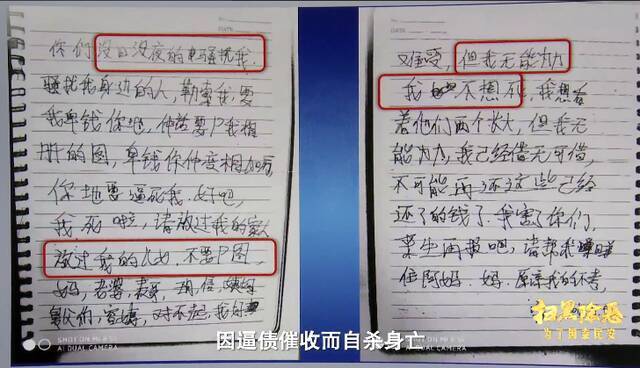 你们没日没夜的电话骚扰我
骚扰我身边的人，勒索我，要
我单钱你地，仲话要P我相
册的图，单钱你仲变相加
你地要逼死我，好吧，
我死啦，请放过我的家人
放过我的儿女，不要P图，
妈，老婆，表哥，
对不起，我好
DATE
难受，但我无能为力
我不想死，我想看
着他们两个长大，但我无
能为力，我已经借无可借，
不可能再还这些已经
还了的钱了，我害了你们，
来生再报吧，请帮我
住阿妈，妈，原谅我的不孝，
SHOT ON MI
AI DUAL CAMERA
SHOT ON MI
AI DUAL CAMERA
因逼债催收而自杀身亡
扫黑除恶
为了国泰民安